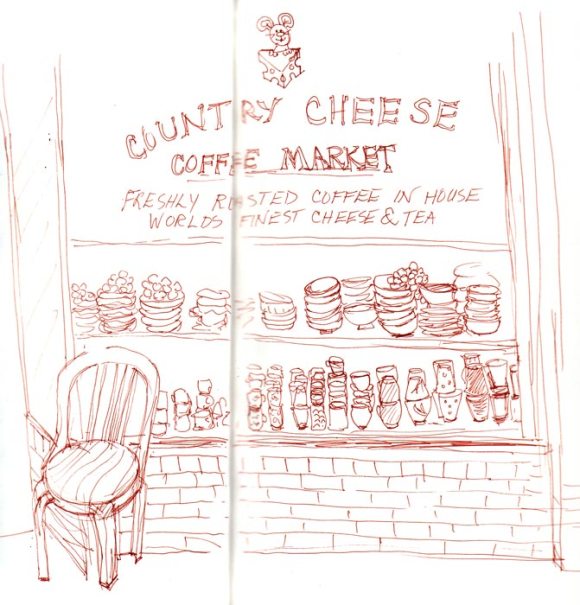 COUNTRY CHEESE
COFFEE MARKET
FRESHLY ROASTED COFFEE IN HOUSE
WORLDS FINEST CHEESE & TEA